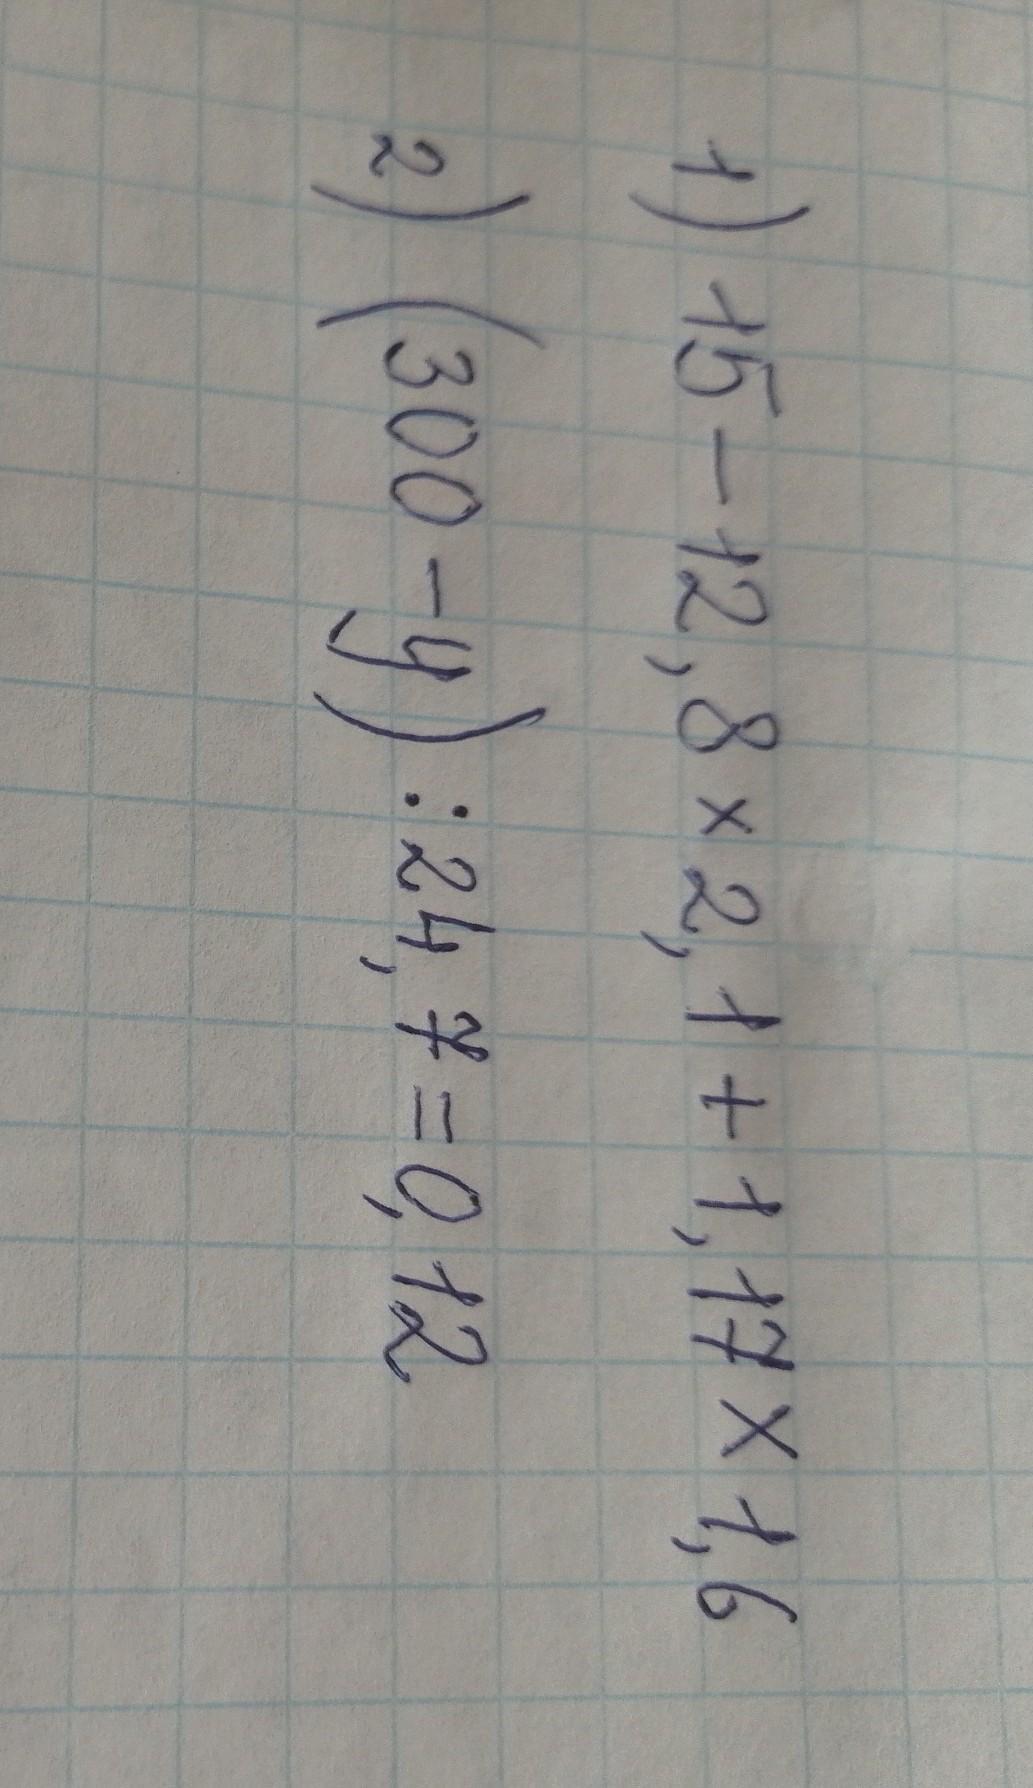 1) 15 - 12,8 × 2,1 + 1,17 × 1,6
2) (300 - y) : 24,7 = 0,12